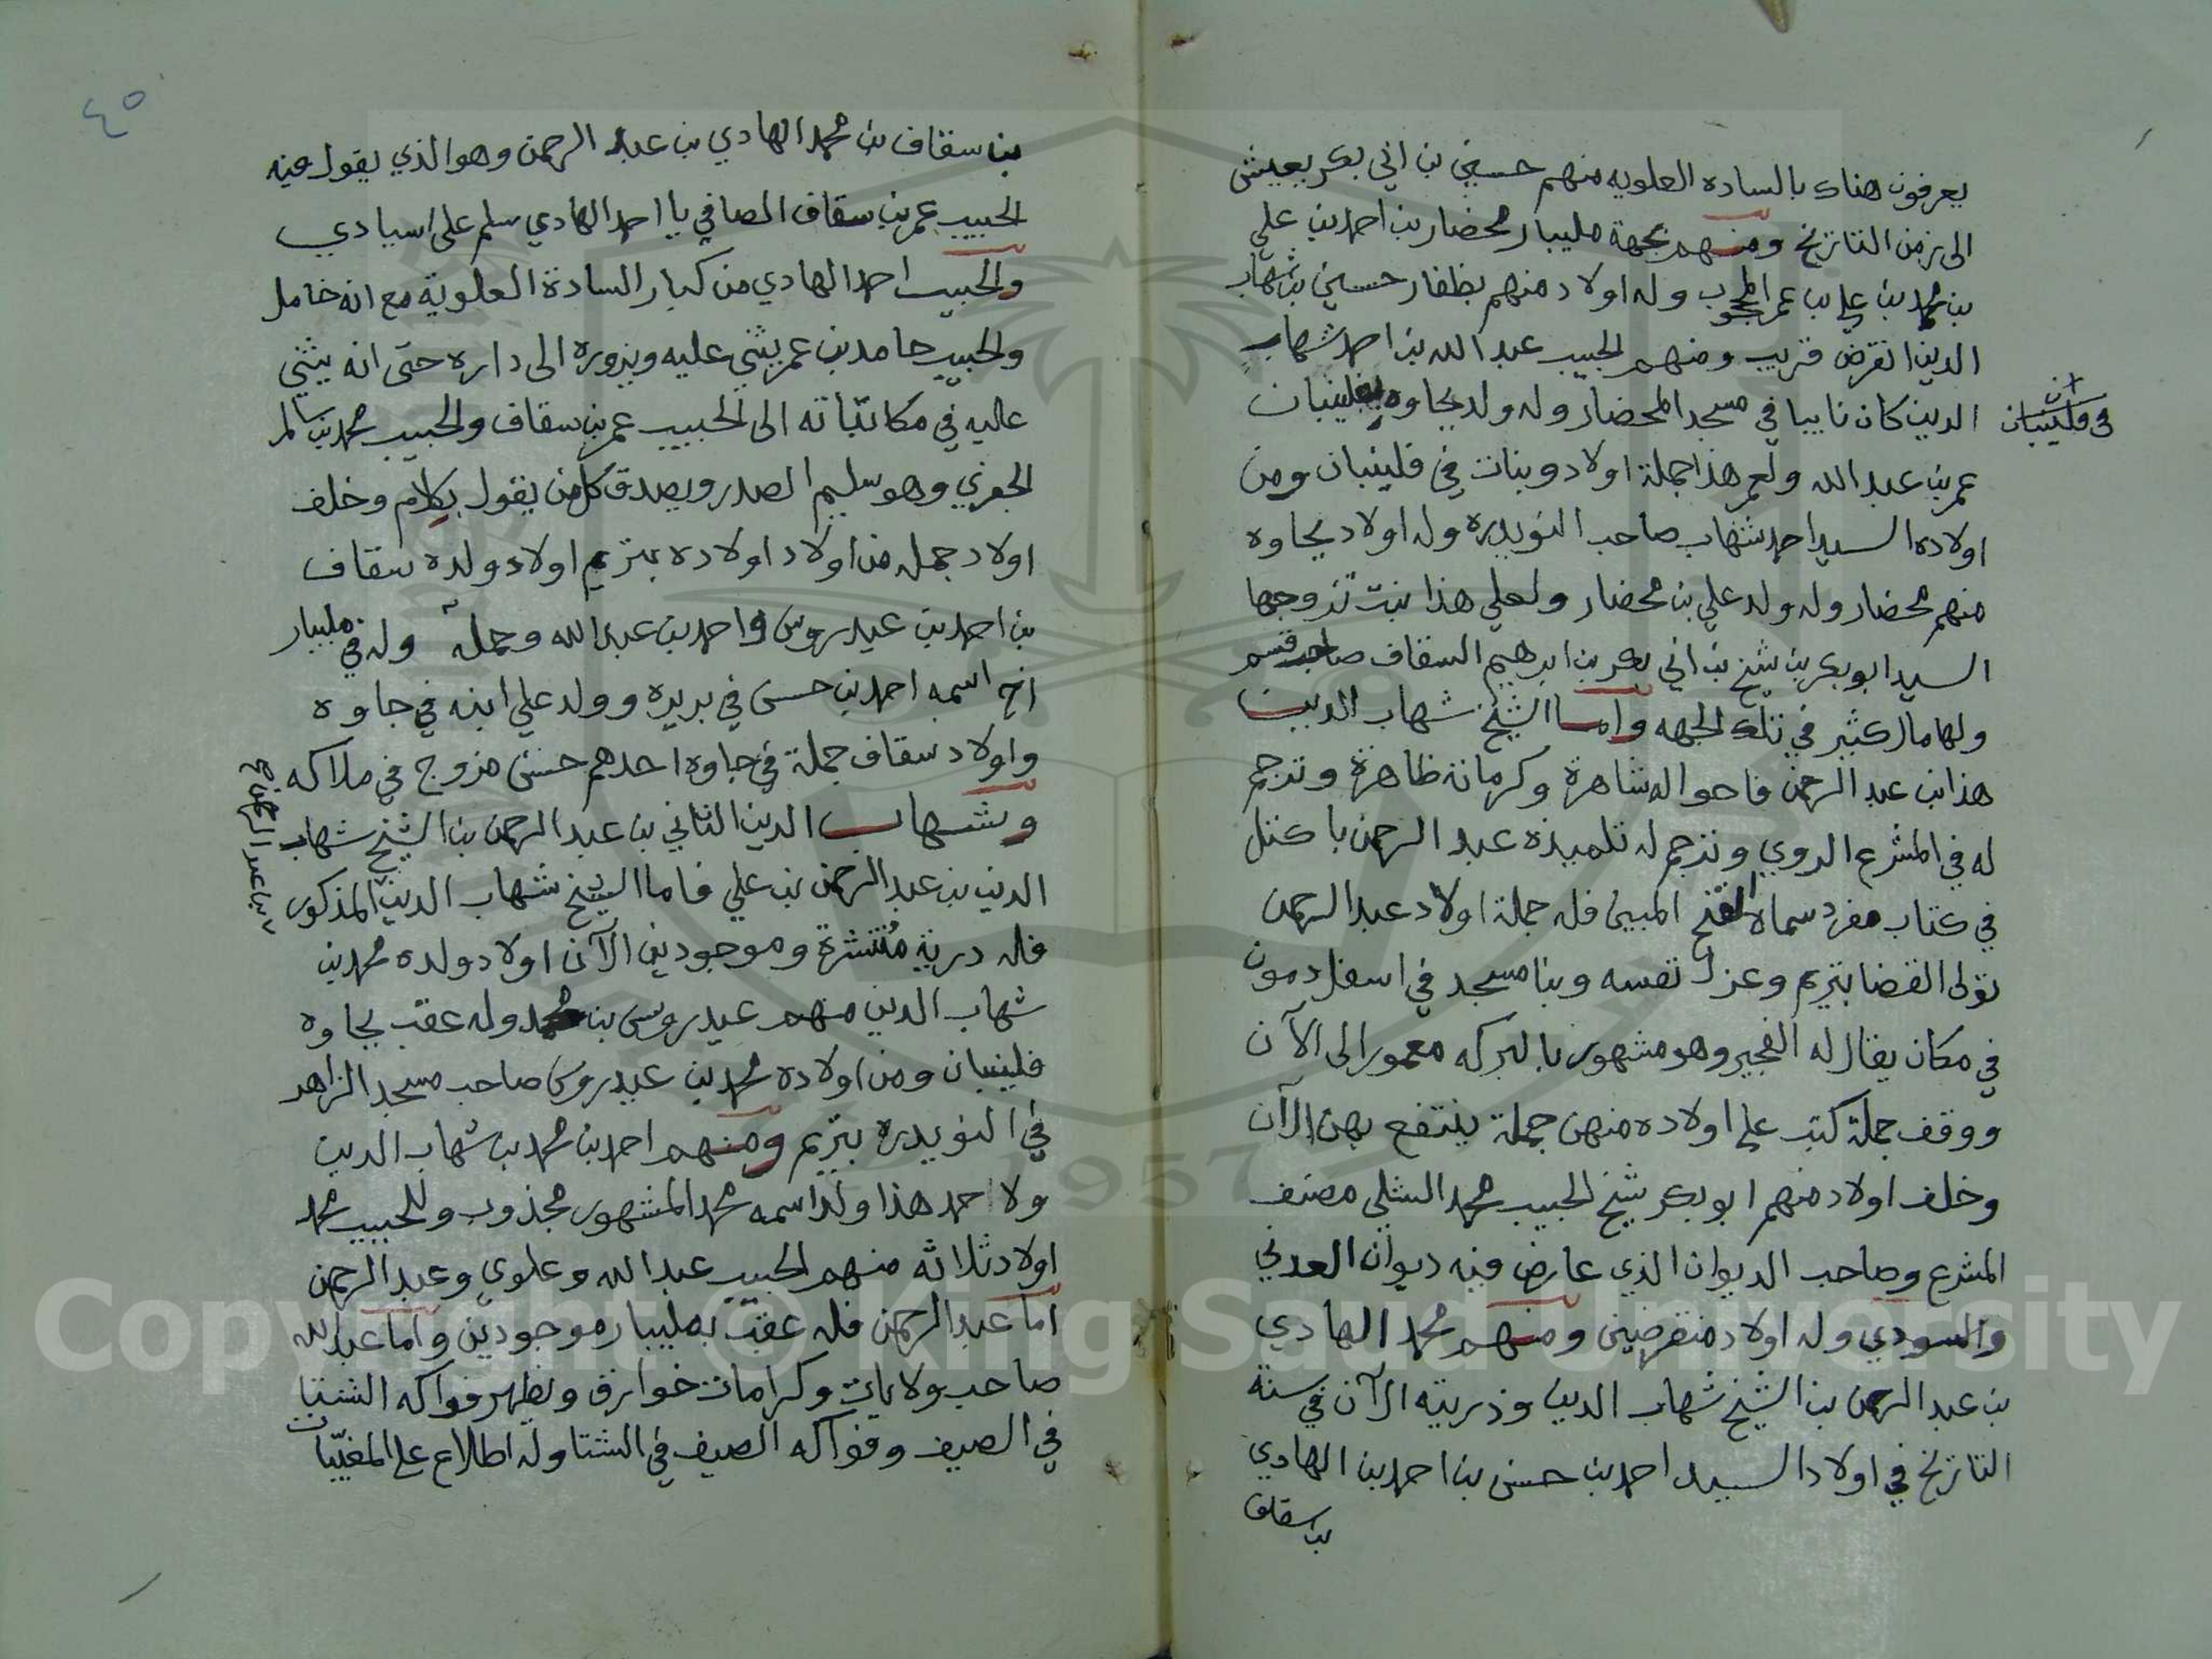 يعرفون هناك بالساده العلويه منهم حسين بن ابي بكر يعيش
الى زمن التاريخ ومنهم بجهة مليبار محضار بن احمد بن علي
بن محمد بن علي بن عمر المحجوب وله اولاد منهم بظفار حسين بن شهاب
الدين انقرض قريب ومنهم الحبيب عبد الله بن احمد شهاب
الدين كان نايبا في مسجد المحضار وله ولد بجاوه بفلينبان
في فلينبان
عمر بن عبد الله ولعمر هذا جملة اولاد وبنات في فلينبان ومن
اولاده السيد احمد شهاب صاحب النويدره وله اولاد بجاوه
منهم محضار وله ولد علي بن محضار ولعلي هذا بنت تزوجها
السيد ابو بكر بن شيخ بن ابي بكر بن ابرهيم السقاف صاحب قسم
ولها مال كثير في تلك الجهه واما الشيخ شهاب الدين
هذا بن عبد الرحمن فاحواله شاهرة وكرماته ظاهرة وترجم
له في المشرع الروي وترجم له تلميذه عبد الرحمن باكتل
في كتاب مفرد سماه الفتح المبين فله جملة اولاد عبد الرحمن
تولى القضا بتريم وعزل نفسه وبنا مسجد في اسفل دمون
في مكان يقال له الفجير وهو مشهور بالبركه معمور الى الآن
ووقف جملة كتب على اولاده منهن جملة ينتفع بهن الآن
وخلف اولاد منهم ابو بكر شيخ الحبيب محمد الشلي مصنف
المشرع وصاحب الديوان الذي عارض فيه ديوان العدني
والسودي وله اولاد منقرضين ومنهم محمد الهادي
بن عبد الرحمن بن الشيخ شهاب الدين وذريته الآن في سنة
التاريخ في اولاد السيد احمد بن حسن بن احمد بن الهادي
بن سقاف
٤٥
بن سقاف بن محمد الهادي بن عبد الرحمن وهو الذي يقول فيه
الحبيب عمر بن سقاف الصافي يا احمد الهادي سلم على اسيادي
والحبيب احمد الهادي من كبار السادة العلوية مع انه خامل
والحبيب حامد بن عمر يثني عليه ويزوره الى داره حتى انه يثني
عاليه في مكاتباته الى الحبيب عمر بن سقاف والحبيب محمد بن سالم
الجفري وهو سليم الصدر ويصدق كل من يقول بكلام وخلف
اولاد جمله من اولاد اولاده بتريم اولاد ولده سقاف
بن احمد بن عيدروس واحمد بن عبد الله وجملة وله في مليبار
اخ اسمه احمد بن حسن في بريره وولد علي ابنه في جاوه
واولاد سقاف جملة في جاوه احدهم حسن مزوج في ملاكه
وشهاب الدين الثاني بن عبد الرحمن بن الشيخ شهاب
بن عبد الرحمن
الدين بن عبد الرحمن بن علي فاما الشيخ شهاب الدين المذكور
فله درية مُنتشرة وموجودين الآن اولاد ولده محمد بن
شهاب الدين منهم عيدروس بن محمد وله عقب بجاوه
فلينبان ومن اولاده محمد بن عيدروس صاحب مسجد الزاهر
في النويدره بتريم ومنهم احمد بن محمد بن شهاب الدين
ولاحمد هذا ولد اسمه محمد المشهور مجذوب وللحبيب محمد
اولاد ثلاثه منهم الحبيب عبد الله وعلوي وعبد الرحمن
اما عبد الرحمن فله عقب بمليبار موجودين واما عبد الله
صاحب ولايات وكرامات خوارق ويظهر فواكه الشتا
في الصيف وفواكه الصيف في الشتا وله اطلاع على المغيّبات
Copyright © King Saud University
1957